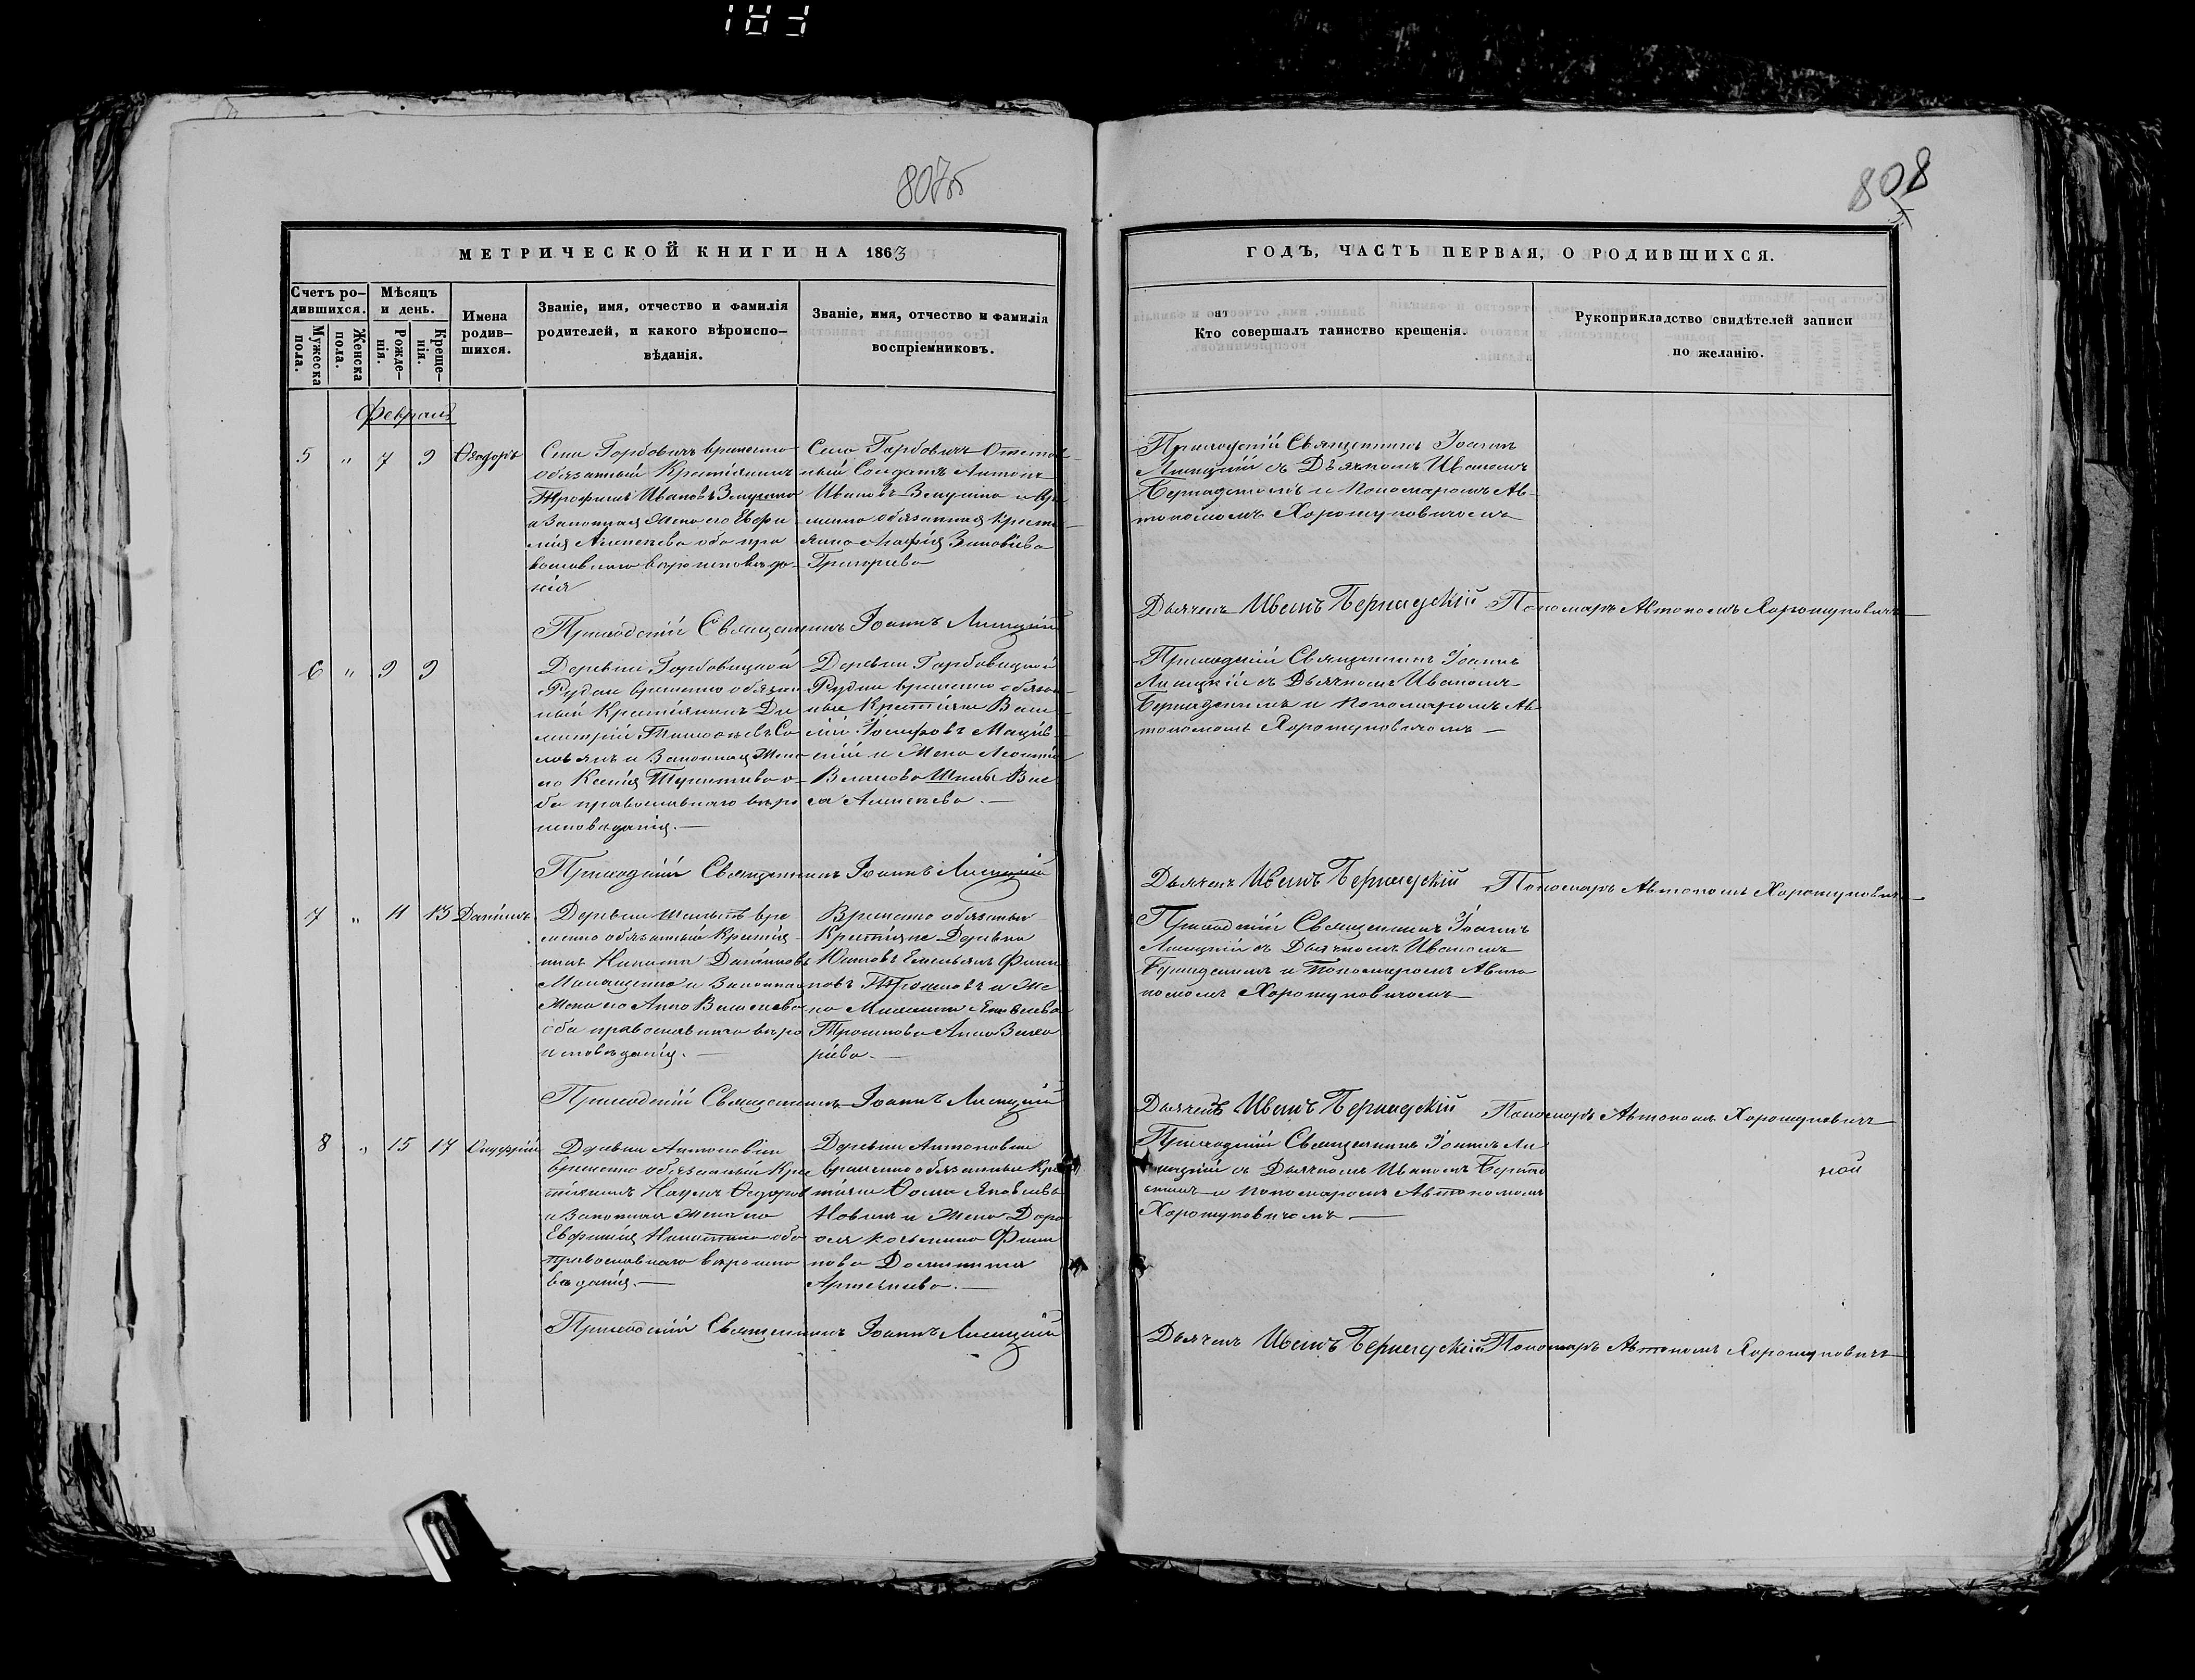 807об
808
МЕТРИЧЕСКОЙ КНИГИ НА 1863
Счетъ ро-
дившихся.
Мужеска
пола.
Женска
пола.
Мѣсяцъ
и день.
Рожде-
нія.
Креще-
нія.
Имена
родив-
шихся.
Званіе, имя, отчество и фамилія
родителей, и какого вѣроиспо-
вѣданія.
Званіе, имя, отчество и фамилія
воспріемниковъ.
Февраль
5 „ 7 9 Ѳеодоръ
Села Горбовичъ временно
обязанный Крестьянинъ
Трофимъ Ивановъ
и Законная Жена его Евфи
мія Алексѣева оба пра
вославнаго вѣроисповѣда-
нія
Села Горбовичъ Отстав
ный Солдатъ Антонъ
Ивановъ и Вре
менно обязанная Кресть
янка Марфія Зиновіева
Григорьева
Приходскій Священникъ Іоаннъ Лисицкій
6 „ 9 9
Деревни Горбовицкой
Рудни временно обязан
ный Крестьянинъ Ди
митрій
и Законная Жена
его Ксенія о-
ба православнаго вѣро
исповѣданія.—
Деревни Горбовицкой
Рудни временно обязан
ные Крестьяне Васи
лій Іосифовъ
и Жена
Алексѣева.—
Приходскій Священникъ Іоаннъ Лисицкій
7 „ 11 13 Даніилъ
Деревни вре
менно обязанный Крестья
нинъ Никита Даниловъ
и Законная
Жена его Анна Васильева
оба православнаго вѣро
исповѣданія.—
Временно обязанные
Крестьяне Деревни
Емельянъ Филип
повъ и Же
на
Анна Заха
рьева.—
Приходскій Священникъ Іоаннъ Лисицкій
8 „ 15 17 Онуфрій
Деревни Антоновки
временно обязанный Кре
стьянинъ Наумъ Ѳедоровъ
и Законная Жена его
Евфимія оба
православнаго вѣроиспо
вѣданія.—
Деревни Антоновки
временно обязанные Кре
стьяне Ѳома Яковлевъ
и Жена
Филип
пова
Артемьева.—
Приходскій Священникъ Іоаннъ Лисицкій
ГОДЪ, ЧАСТЬ ПЕРВАЯ, О РОДИВШИХСЯ.
Кто совершалъ таинство крещенія.
Рукоприкладство свидѣтелей записи
по желанію.
Приходскій Священникъ Іоаннъ
Лисицкій съ Дьячкомъ Иваномъ
Бернадскимъ и Пономаремъ Ав-
тономомъ Хорошуновичемъ
Дьячекъ Иванъ Бернадскій Пономарь Автономъ Хорошуновичъ
Приходскій Священникъ Іоаннъ
Лисицкій съ Дьячкомъ Иваномъ
Бернадскимъ и Пономаремъ Ав-
тономомъ Хорошуновичемъ —
Дьячекъ Иванъ Бернадскій Пономарь Автономъ Хорошуновичъ
Приходскій Священникъ Іоаннъ
Лисицкій съ Дьячкомъ Иваномъ
Бернадскимъ и Пономаремъ Авто
номомъ Хорошуновичемъ
Дьячекъ Иванъ Бернадскій Пономарь Автономъ Хорошуновичъ
Приходскій Священникъ Іоаннъ Ли
сицкій съ Дьячкомъ Иваномъ Бернад
скимъ и Пономаремъ Автономомъ
Хорошуновичемъ —
ной
Дьячекъ Иванъ Бернадскій Пономарь Автономъ Хорошуновичъ